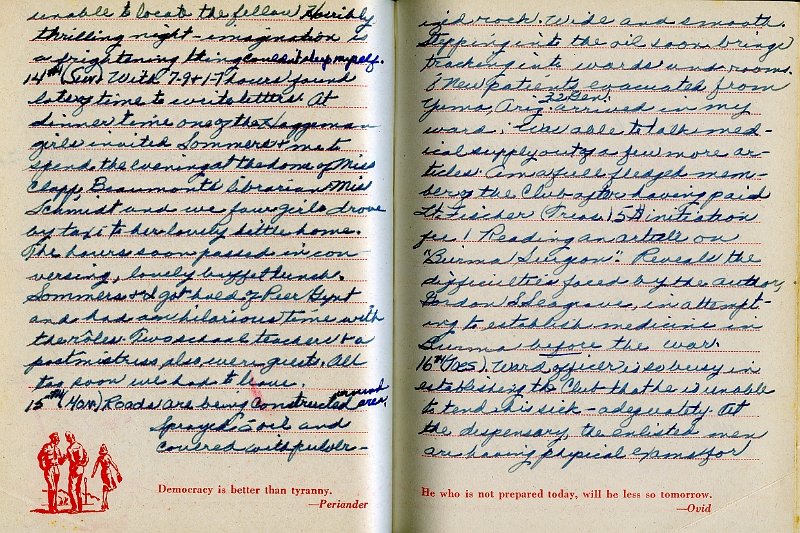 unable to locate the fellow. Horribly
thrilling night - imagination is
a frightening thing
14th (Sun) With 7-9 + 1-7 hours found
time to write letters. At
dinner time one of the Haggeman
girls invited Sommers & me to
spend the evening at the home of Miss
Clapp, Beaumont's librarian. Miss
Schmidt and we four girls drove
by taxi to her lovely little home.
The hours soon passed in con-
versing, lovely buffet lunch.
Sommers & I got hold of Peer Gynt
and had an hilarious time with
the rôles. Two school teachers & a
postmistress, also, were guests. All
too soon we had to leave.
15th (Mon) Roads are being constructed around
area.
Sprayed c̄ oil and
covered with pulver-
Democracy is better than tyranny.
—Periander
ized rock. Wide and smooth.
Stepping into the oil soon brings
tracking into wards and rooms.
8 New patients evacuated from
Yuma, Ariz. 22 Gen. arrived in my
ward. Was able to talk med-
ical supply out of a few more ar-
ticles. Am a full fledged mem-
ber of the Club, after having paid
Lt. Fischer (Treas.) 5$ initiation
fee! Reading an article on
"Burma Surgeon". Reveals the
difficulties faced by the author,
Gordon S. Seagrave, in attempt-
ing to establish medicine in
Burma before the war.
16th (Tues). Ward officer is so busy in
establishing the Club that he is unable
to tend his sick - adequately. At
the dispensary, the enlisted men
are having physical exams for
He who is not prepared today, will be less so tomorrow.
—Ovid